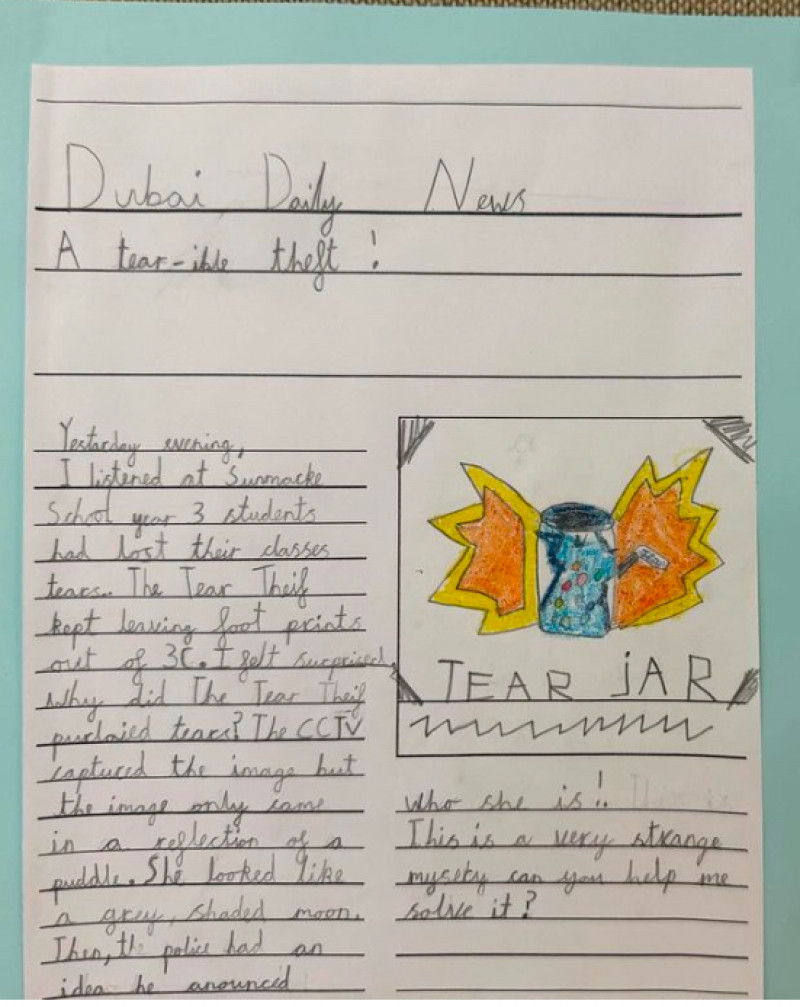 Dubai Daily News
A tear-ible theft!
Yesterday evening,
I listened at Sunmacke
School year 3 students
had lost their classes
tears.. The Tear Theif
kept leaving foot prints
out of 3C. I felt surprised,
why did The Tear Theif
purloied tears? The CCTV
captured the image but
the image only came
in a reflection of a
puddle. She looked like
a grey, shaded moon.
Then, the police had an
idea he anounced
TEAR JAR
who she is!!
This is a very strange
mysety can you help me
solve it?